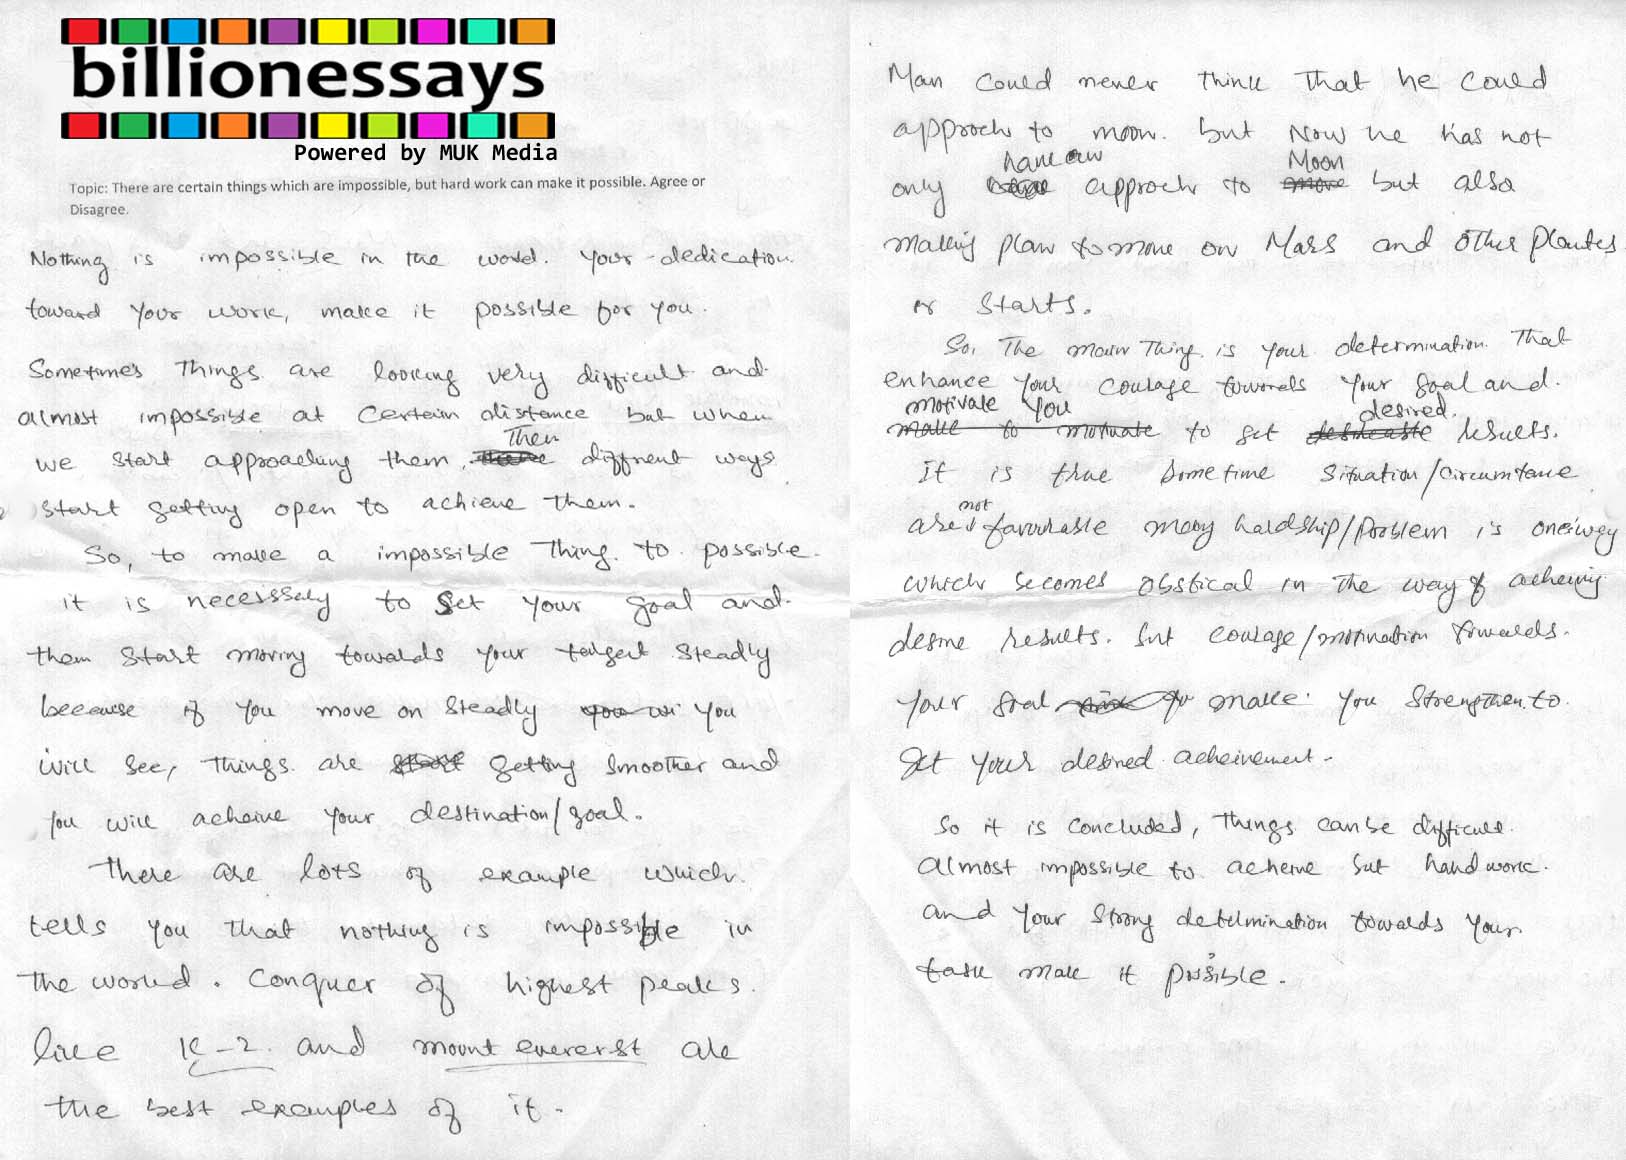 billionessays
Powered by MUK Media
Topic: There are certain things which are impossible, but hard work can make it possible. Agree or
Disagree.
Nothing is impossible in the world. Your dedication
toward your work, make it possible for you.
Sometimes things are looking very difficult and
almost impossible at certain distance but when
we start approaching them, Then diffrent ways
start getting open to achieve them.
So, to make a impossible thing to possible
it is necesssary to set your goal and
them start moving towards your target steadly
because if you move on steadly you
will see, things are getting smoother and
you will acheive your destination/goal.
There are lots of example which
tells you that nothing is impossible in
the world. Conquer of highest peaks
like K-2 and mount evererst are
the best examples of it.
Man could never think that he could
approch to moon. but Now he has not
only approch to Moon but also
making plan to move on Mars and other Plantes
or Starts.
So, The main Thing is your determination That
enhance your courage towards your goal and
motivate you to get desired results.
It is true sometime situation/circumtance
are not favourable many hardship/problem is one's way
which becomes obstical in the way of acheiving
desire results. but courage/motivation towards
your goal make you strengthen to
get your desired acheivement.
So it is concluded, things can be difficult
almost impossible to acheive but hardwork
and your strong determination towards your
task make it possible.